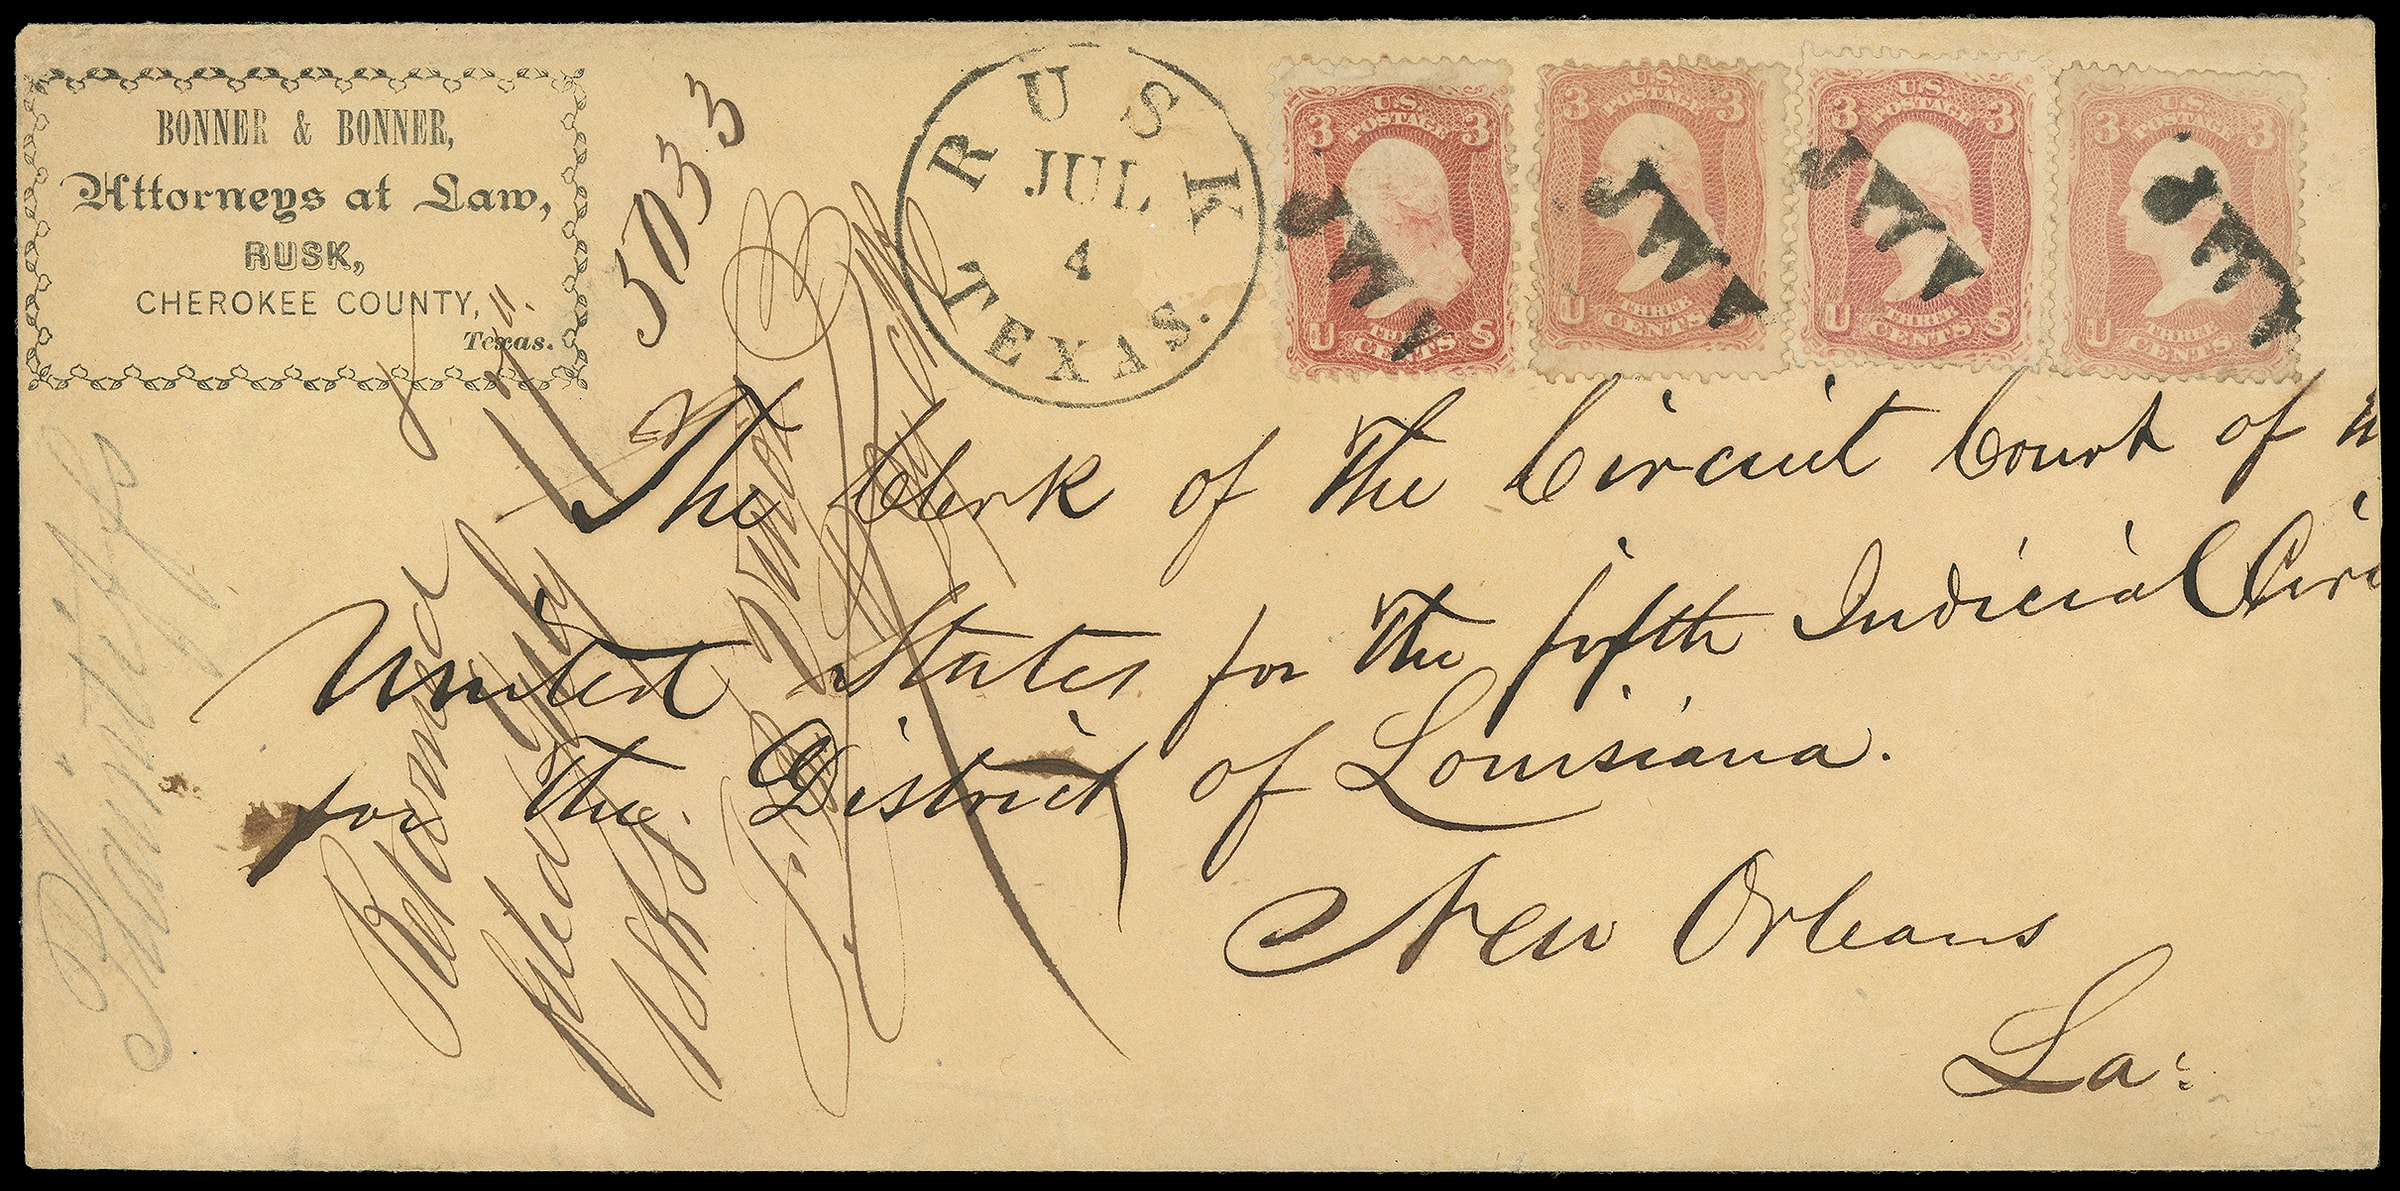 BONNER & BONNER,
Attorneys at Law,
RUSK,
CHEROKEE COUNTY,
Texas.
5033
RUSK
JUL
4
TEXAS.
U.S.
POSTAGE
3 3
THREE
CENTS
U S
U.S.
POSTAGE
3 3
THREE
CENTS
U
U.S.
POSTAGE
3 3
THREE
CENTS
U S
U.S.
POSTAGE
3 3
THREE
CENTS
U
The Clerk of the Circuit Court of
United States for the fifth Judicial Circ
for the District of Louisiana.
New Orleans
La:
Plaintiffs
Returned
filed July